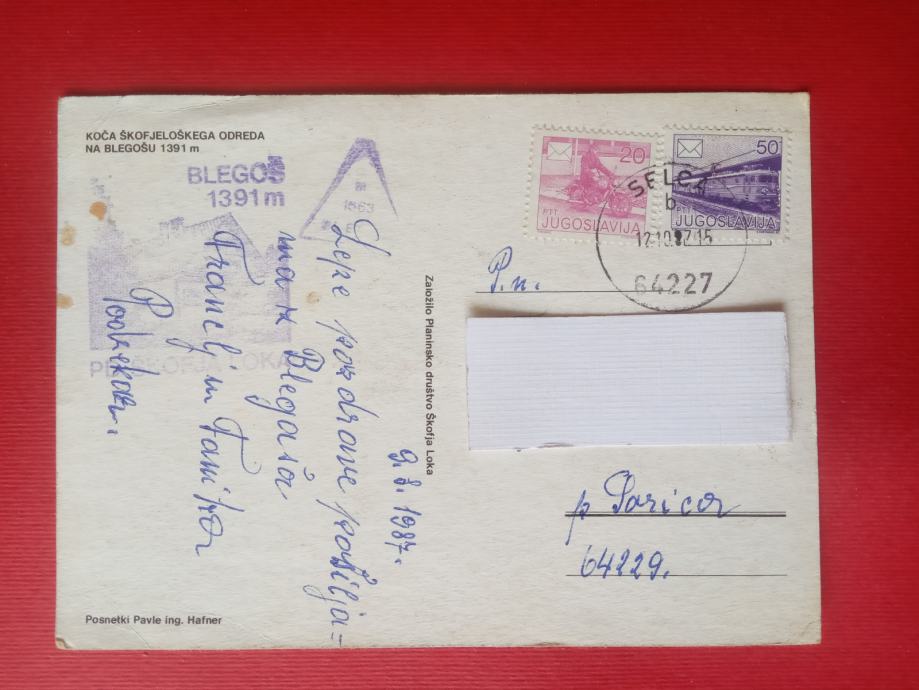 KOČA ŠKOFJELOŠKEGA ODREDA
NA BLEGOŠU 1391 m
BLEGOŠ
1391 m
m
1563
PD ŠKOFJA LOKA
Lepe pozdrave pošilja=
ma iz Blegaša
Francelj in Fanika
9.8.1987.
Založilo Planinsko društvo Škofja Loka
Posnetki Pavle ing. Hafner
20
PTT
JUGOSLAVIJA
50
PTT
JUGOSLAVIJA
SELCA
b
12.10.87.15
64227
P.n.
p Sorica
64229.